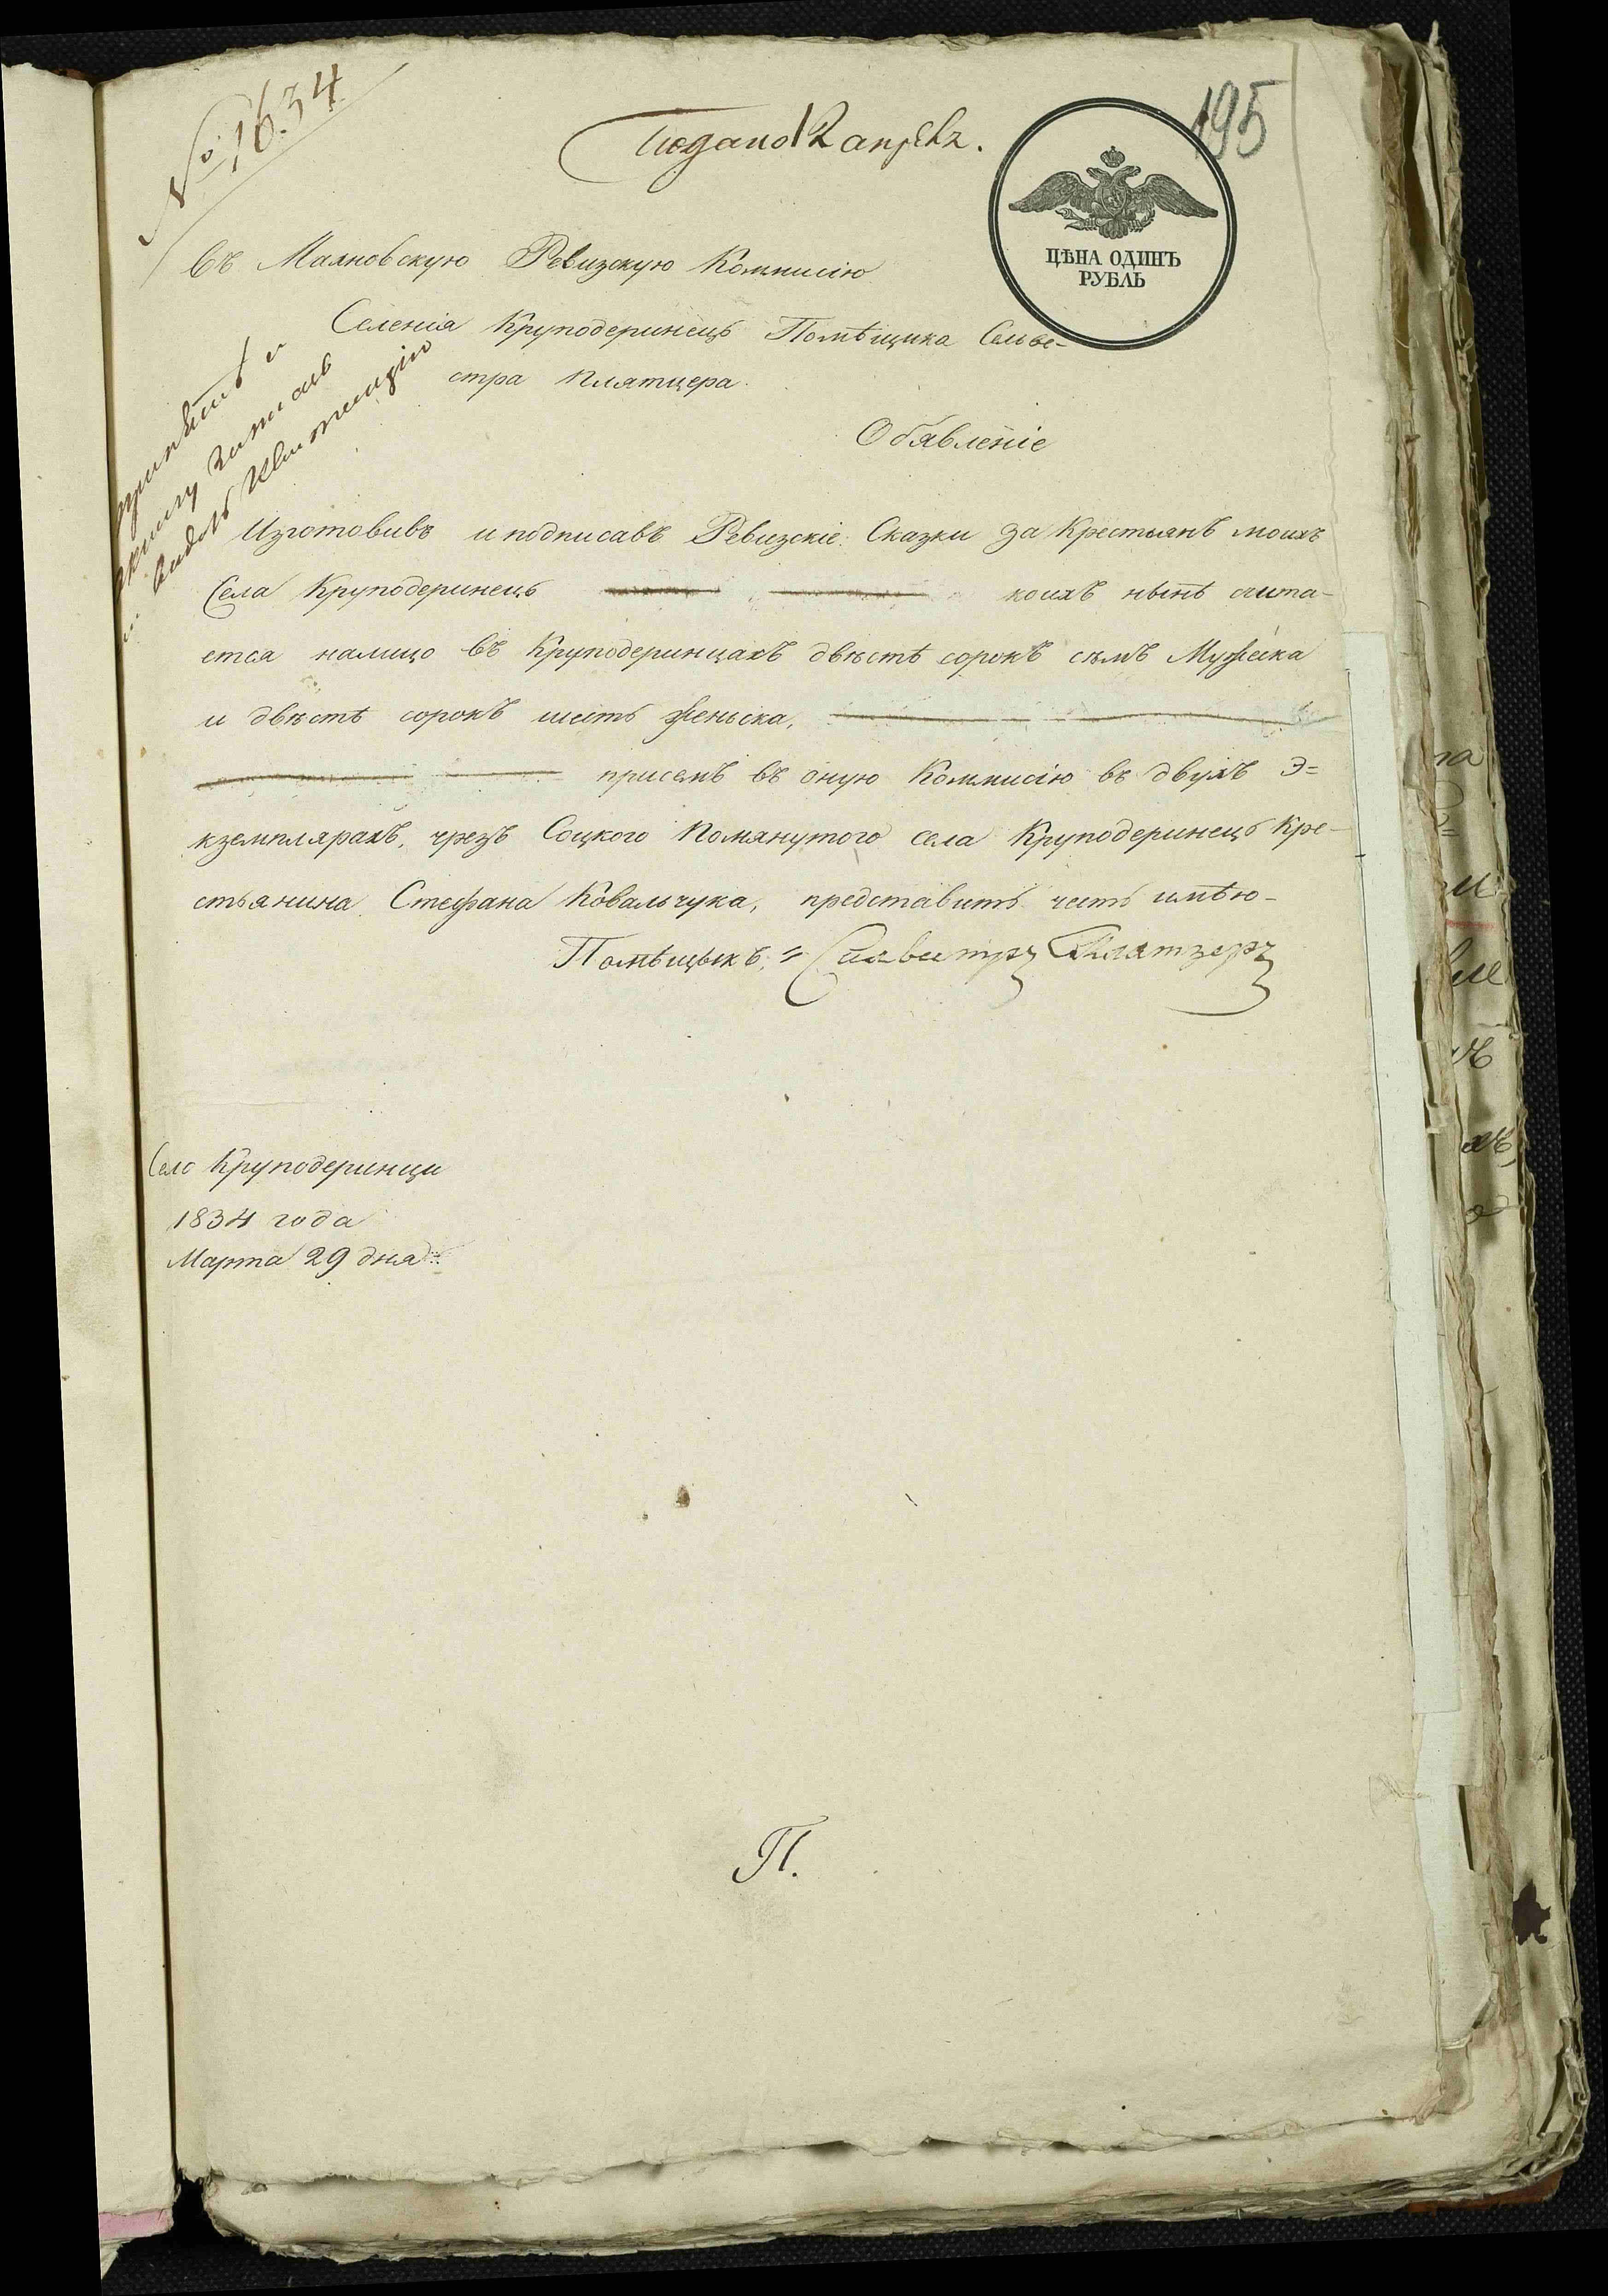 № 1634
Подано 12 апреля.
195
ЦѢНА ОДИНЪ
РУБЛЬ
Въ Махновскую Ревизскую Коммисію
Селенія Круподеринецъ Помѣщика Сельве-
стра Плятцера.
Обявленіе
Изготовивъ и подписавъ Ревизскіе Сказки за Крестьянъ моихъ
Села Круподеринецъ коихъ нынѣ счита-
ется налицо въ Круподеринцахъ двѣстѣ сорокъ сѣмъ Мужеска
и двѣстѣ сорокъ шеть женьска,
присемъ въ оную Коммисію въ двухъ Э=
кземплярахъ, чрезъ Соцкого Помянутого села Круподеринецъ Кре-
стьянина Стефана Ковальчука, представить честь имѣю-
Помѣщыкъ,
Село Круподеринци
1834 года
Марта 29 дня
П.